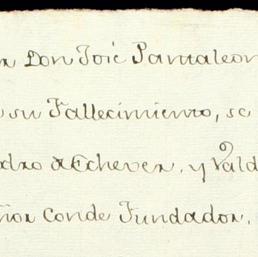 n Don José Pantaleon
su Fallecimiento, se
dro de Echever, y Vald
ñor Conde Fundador.